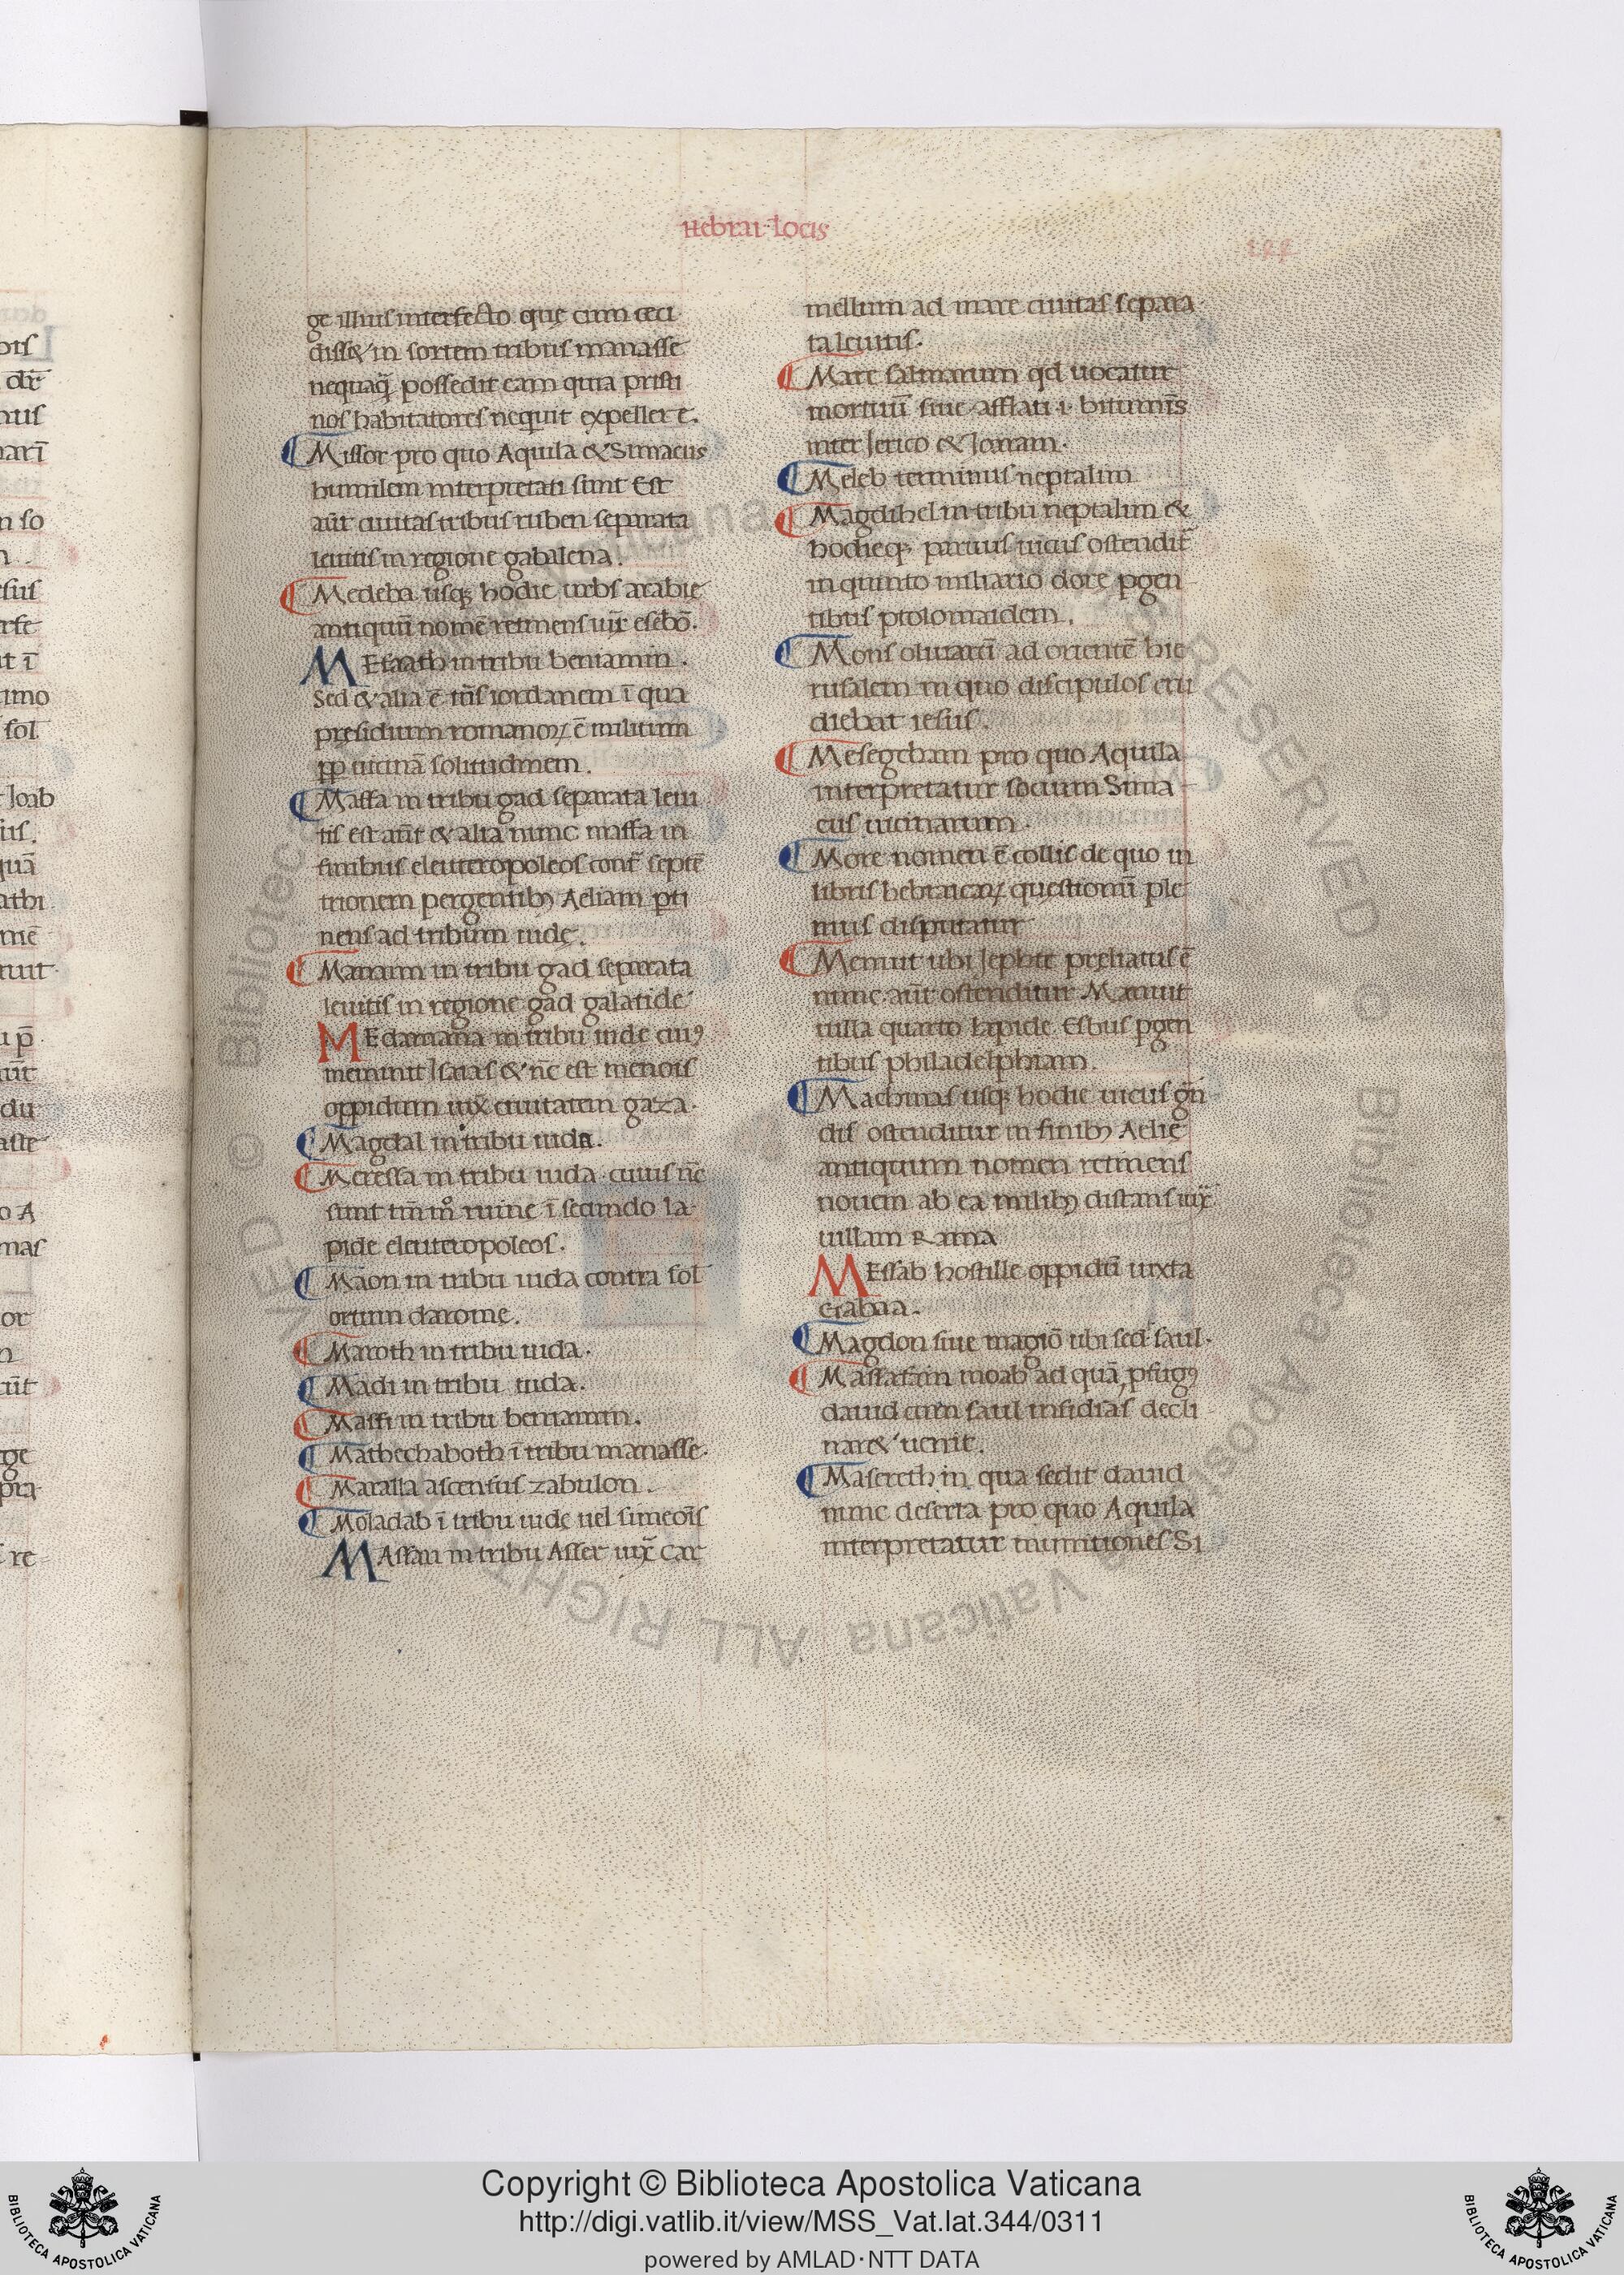 Hebrai. Locis
ge illius interfecto. quę cum ceci
disset in sortem tribus manasse
nequaq̃ possedit eam quia pristi
nos habitatores nequit expellere.
Missor pro quo Aquila & Simacus
humilem interpretati sunt Est
aūt ciuitas tribus ruben separata
leuitis in regione gabalena.
Medeba usq; hodie urbs arabię
antiquū nomē retinens iux̄ esebō.
MEfaath in tribu beniamin.
Sed & alia ē trās iordanem ī qua
pręsidium romanoꝝ ē militum
ꝓp uicinā solitudinem.
Massa in tribu gad separata leui
tis est aūt & alia nunc massa in
finibus eleuteropoleos cont̄ septē
trionem pergentibꝰ Aeliam ꝑti
nens ad tribum iudę.
Manaim in tribu gad separata
leuitis in regione gad galatidę
MEdamana in tribu iudę cuiꝰ
meminit Isaias & n̄c est menois
oppidum iux̄ ciuitatem gaza.
Magdal in tribu iuda.
Meressa in tribu iuda. cuius n̄c
sunt tm̄mͦ ruinę ī secundo la
pide eleuteropoleos.
Maon in tribu iuda contra sol
ortum daromę.
Maroth in tribu iuda.
Madi in tribu iuda.
Massi in tribu beniamin.
Mathechaboth ī tribu manasse.
Maralla ascensus zabulon.
Moladab ī tribu iudę uel simeoīs
MAssan in tribu Asser iux̄ Car
mellum ad mare ciuitas separa
ta leuitis.
Mare salinarum qd uocatur
mortuū siue asflati .i. bituminīs
inter Ierico & Zoaram.
Meleb terminus neptalim
Magdihel in tribu neptalim &
hodieq; paruus uicus ostendit̄
in quinto miliario dorę ꝑgen
tibus ptolomaidem.
Mons oliuarū ad orientē hie
rusalem in quo discipulos eru
diebat iesus.
Mesegcham pro quo Aquila
interpretatur socium Sima
cus uicinarum.
More nomen ē collis de quo in
libris hebraicaꝝ quęstionū ple
nius disputatur
Memuit ubi Iepbte pręliatus ē
nunc aūt ostenditur Manuit
uilla quarto lapide Esbus ꝑgen
tibus philadelphiam.
Machmas usq; hodie uicus gn̄
dis ostenditur in finibꝰ Aelię
antiquum nomen retinens
nouem ab ea milibꝰ distans iux̄
uillam Rama
MEssab hostille oppidū iuxta
Gabaa.
Magdon siue magiō ubi sed̄ saul.
Massafam moab ad quā ꝓfugꝰ
dauid cum saul insidias decli
naret uenit.
Masereth in qua sedit dauid
nunc deserta pro quo Aquila
interpretatur munitiones Si
Copyright © Biblioteca Apostolica Vaticana
http://digi.vatlib.it/view/MSS_Vat.lat.344/0311
powered by AMLAD·NTT DATA
BIBLIOTECA APOSTOLICA VATICANA
BIBLIOTECA APOSTOLICA VATICANA